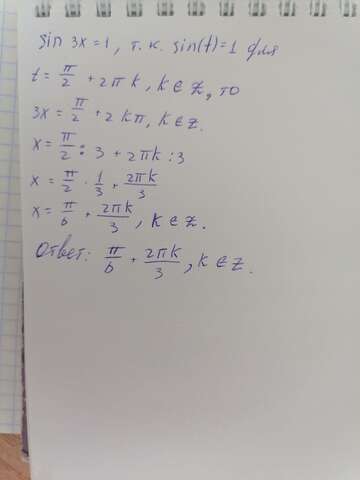 sin 3x = 1, т.к. sin(t) = 1 для
t = π/2 + 2πk, k ∈ Z, то
3x = π/2 + 2kπ, k ∈ Z.
x = π/2 : 3 + 2πk : 3
x = π/2 · 1/3 + 2πk/3
x = π/6 + 2πk/3, k ∈ Z.
Ответ: π/6 + 2πk/3, k ∈ Z.